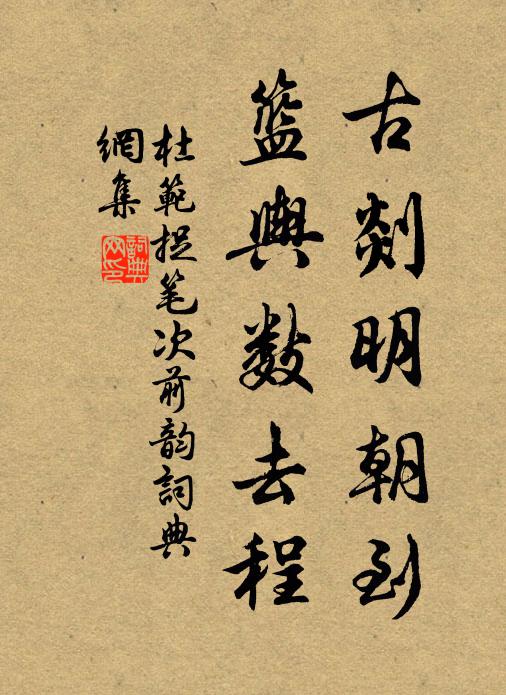 古剡明朝到
籃輿數去程
杜範捉笔次前韵詞典
網集
詞典
网印